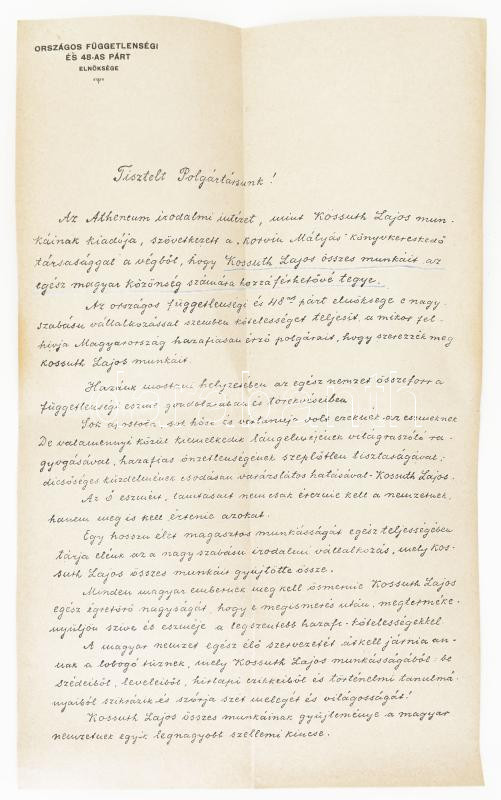 ORSZÁGOS FÜGGETLENSÉGI
ÉS 48-AS PÁRT
ELNÖKSÉGE
Tisztelt Polgártársunk!
Az Atheneum irodalmi intézet, mint Kossuth Lajos mun-
káinak kiadója, szövetkezett a „Korvin Mátyás" könyvkereskedő
társasággal a végből, hogy Kossuth Lajos összes munkáit az
egész magyar közönség számára hozzáférhetővé tegye.
Az országos függetlenségi és 48as párt elnöksége e nagy-
szabásu vállalkozással szemben kötelességet teljesit, a mikor fel-
hivja Magyarország hazafiasan érző polgárait, hogy szerezzék meg
Kossuth Lajos munkáit.
Hazánk mostani helyzetében az egész nemzet összeforr a
függetlenségi eszme gondolatában és törekvéseiben
Sok apostola, sok hőse és vértanuja volt ezeknek az eszméknek
De valamennyi közül kiemelkedik lángelméjének világraszóló ra-
gyogásával, hazafias önzetlenségének szeplőtlen tisztaságával;
dicsőséges küzdelmének csodásan varázslatos hatásával - Kossuth Lajos.
Az Ő eszméit, tanitásait nemcsak éreznie kell a nemzetnek,
hanem meg is kell értenie azokat.
Egy hosszu élet magasztos munkásságát egész teljességében
tárja elénk az a nagyszabásu irodalmi vállalkozás, mely Kos-
suth Lajos összes munkáit gyüjtötte össze.
Minden magyar embernek meg kell ösmernie Kossuth Lajos
egész égretörő nagyságát, hogy e megismerés után, megterméke-
nyüljön szive és eszméje a legszentebb hazafi-kötelességekkel.
A magyar nemzet egész élő szervezetét át kell járnia an-
nak a lobogó tüznek, mely Kossuth Lajos munkásságából: be
szédeiből, leveleiből, hirlapi czikkeiből és történelmi tanulmá-
nyaiból szikrázik és szórja szét melegét és világosságát!
Kossuth Lajos összes munkáinak gyüjteménye a magyar
nemzetnek egyik legnagyobb szellemi kincse.